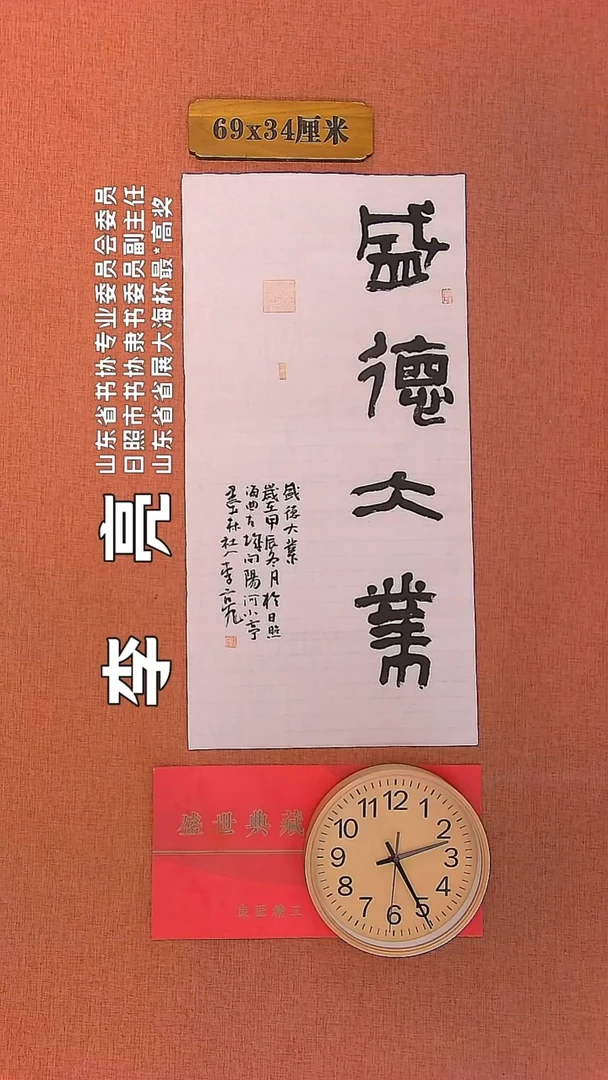 69x34厘米
盛德大業
盛德大業
歲在甲辰冬月於日照
海曲古城向陽河小亭
墨林社人李亮
山东省书协专业委员会委员
日照市书协隶书委员副主任
山东省省展大海杯最*高奖
李 亮
盛世典藏
良匠精工
12
1
2
3
4
5
6
7
8
9
10
11